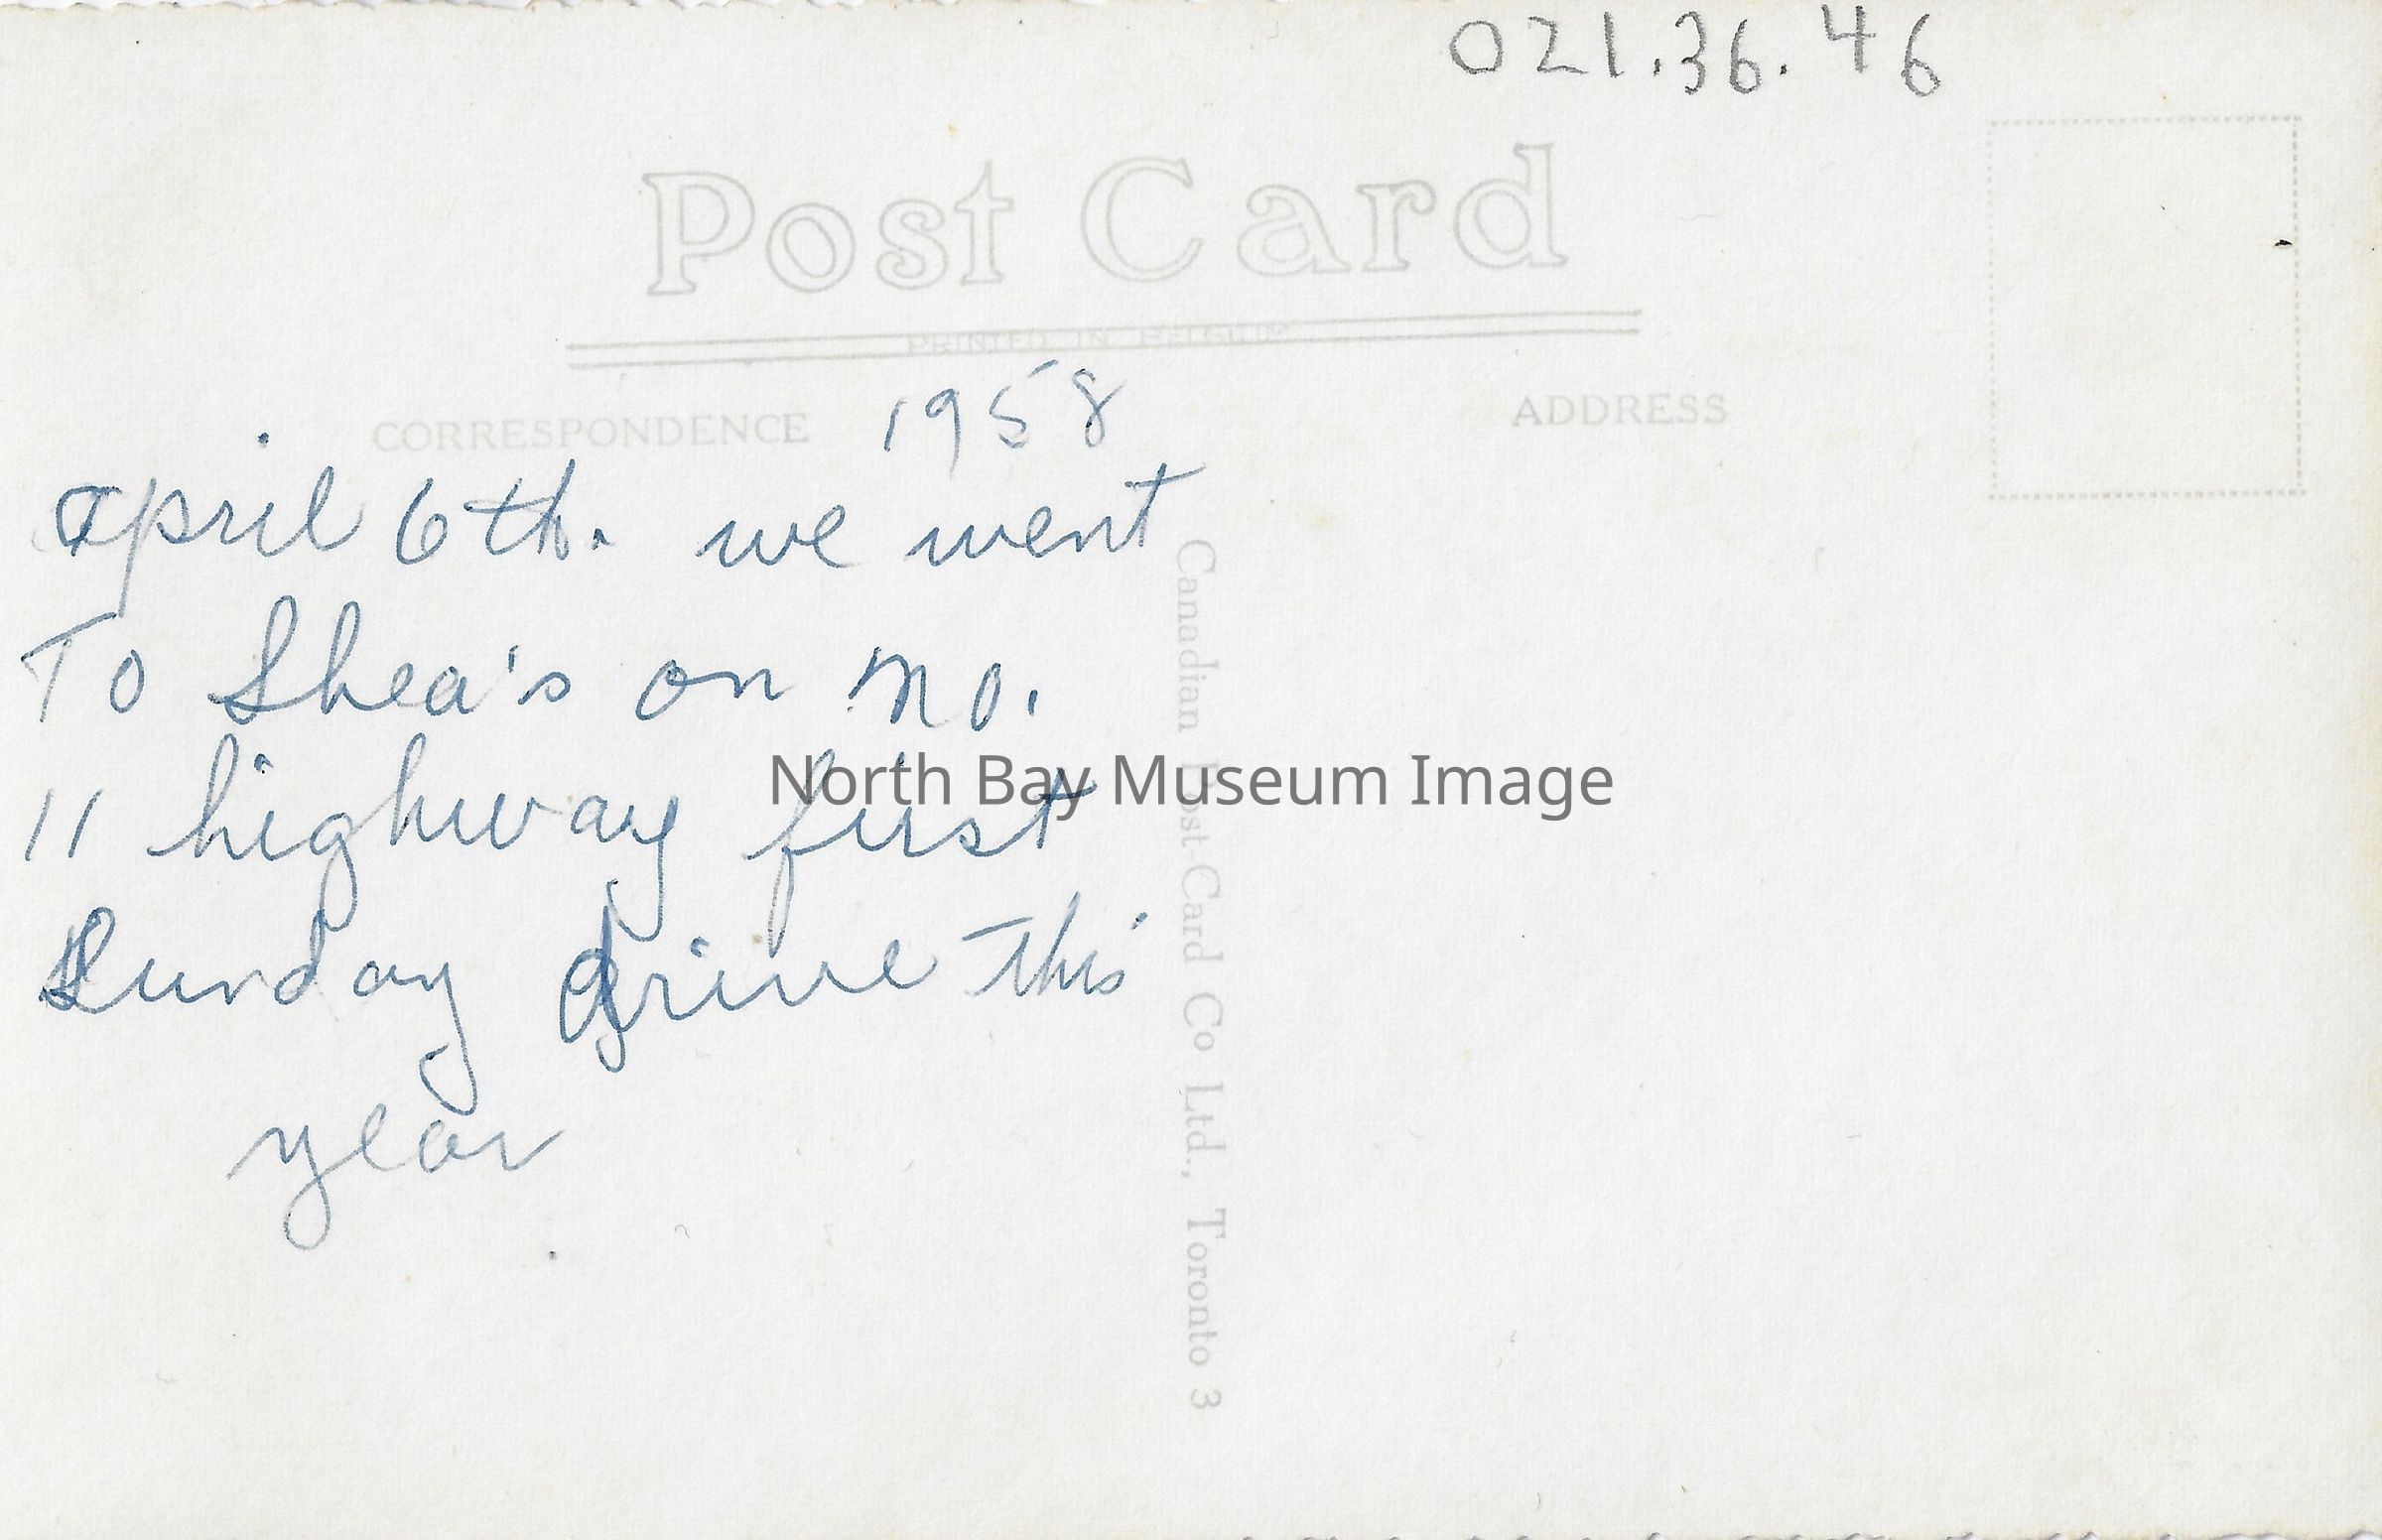 021.36.46
Post Card
PRINTED IN BELGIUM
CORRESPONDENCE
ADDRESS
1958
april 6th. we went
To Shea's on no.
11 highway first
Sunday drive This
year
Canadian Post Card Co Ltd., Toronto 3
North Bay Museum Image